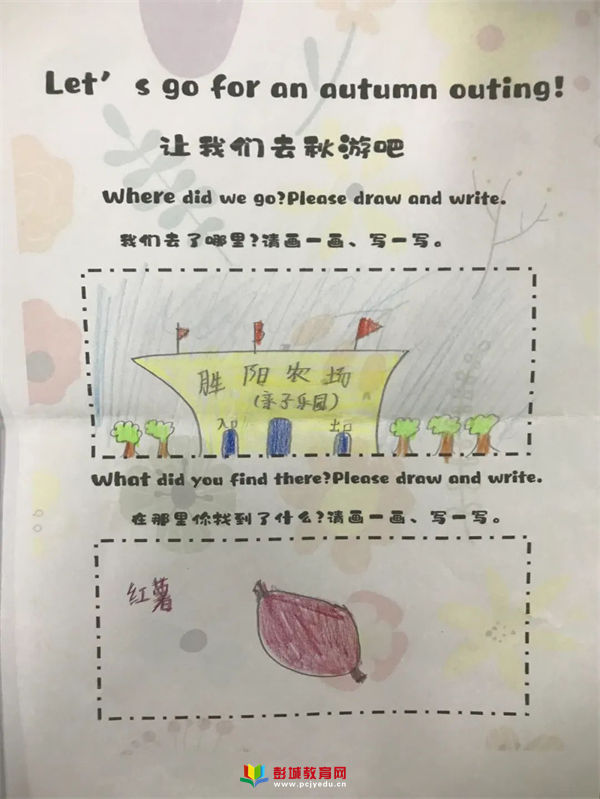 Let's go for an autumn outing!
让我们去秋游吧
Where did we go?Please draw and write.
我们去了哪里?请画一画、写一写。
胜阳农场
(亲子乐园)
入口 出口
What did you find there?Please draw and write.
在那里你找到了什么?请画一画、写一写。
红薯
彭城教育网
www.pcjyedu.cn